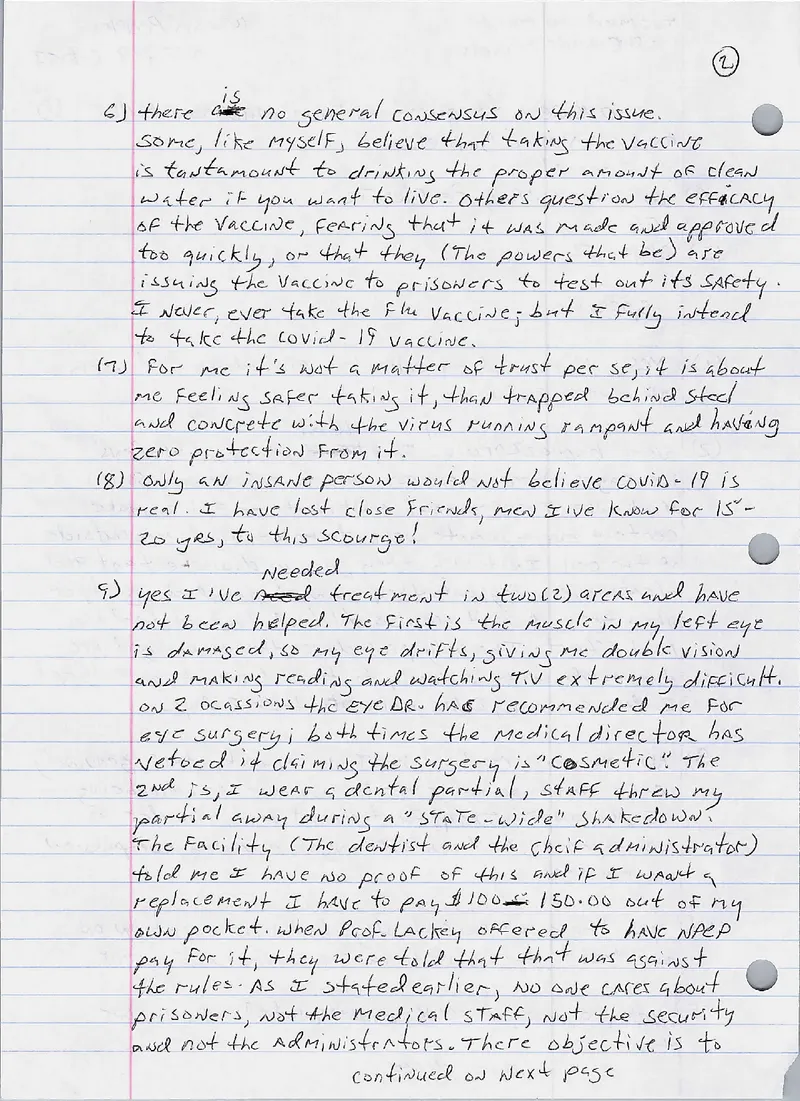 2
is
6) there are no general consensus on this issue.
Some, like myself, believe that taking the vaccine
is tantamount to drinking the proper amount of clean
water if you want to live. Others question the efficacy
of the vaccine, fearing that it was made and approved
too quickly, or that they (The powers that be) are
issuing the vaccine to prisoners to test out its safety.
I never, ever take the flu vaccine; but I fully intend
to take the covid-19 vaccine.
(7) For me it's not a matter of trust per se, it is about
me feeling safer taking it, than trapped behind steel
and concrete with the virus running rampant and having
zero protection from it.
(8) Only an insane person would not believe covid-19 is
real. I have lost close friends, men I've know for 15-
20 yrs, to this scourge!
Needed
9) yes I've need treatment in two(2) areas and have
not been helped. The first is the muscle in my left eye
is damaged, so my eye drifts, giving me double vision
and making reading and watching T.V extremely difficult.
on 2 ocassions the eye DR. has recommended me for
eye surgery; both times the medical director has
vetoed it claiming the surgery is "cosmetic". The
2nd is, I wear a dental partial, staff threw my
partial away during a "State-wide" shakedown.
The Facility (The dentist and the cheif administrator)
told me I have no proof of this and if I want a
replacement I have to pay $100 - 150.00 out of my
own pocket. when Prof. Lackey offered to have NPEP
pay for it, they were told that that was against
the rules. As I stated earlier, no one cares about
prisoners, not the medical staff, not the security
and not the Administrators. There objective is to
continued on next page